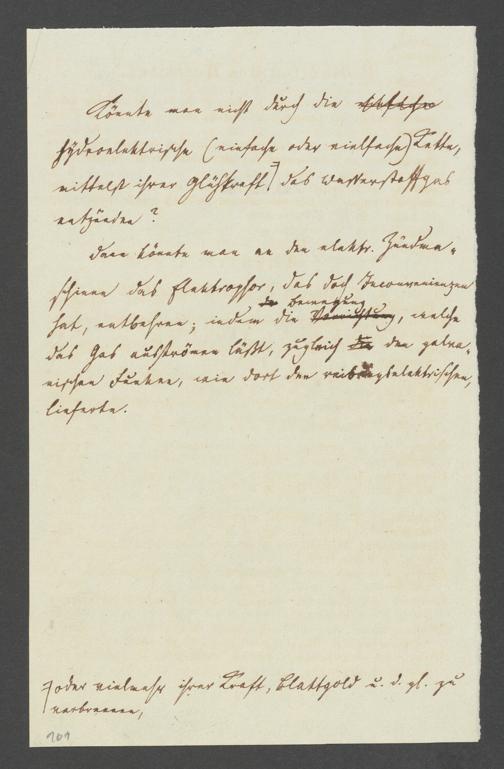 Könnte man nicht durch die einfache
hydroelektrische (einfache oder vielfache) Kette,
mittelst ihrer Glühkraft ⌉ das Wasserstoffgas
entzünden?
Dann könnte man an den elektr. Zündma-
schinen das Elektrophor, das doch Inconvenienzen
hat, entbehren; indem die Bewegung, welche
das Gas ausströmen läßt, zugleich die den galva-
nischen Funken, wie dort den reibungselektrischen,
lieferte.
⌉ oder vielmehr ihrer Kraft, Blattgold u. d. gl. zu
verbrennen,
101